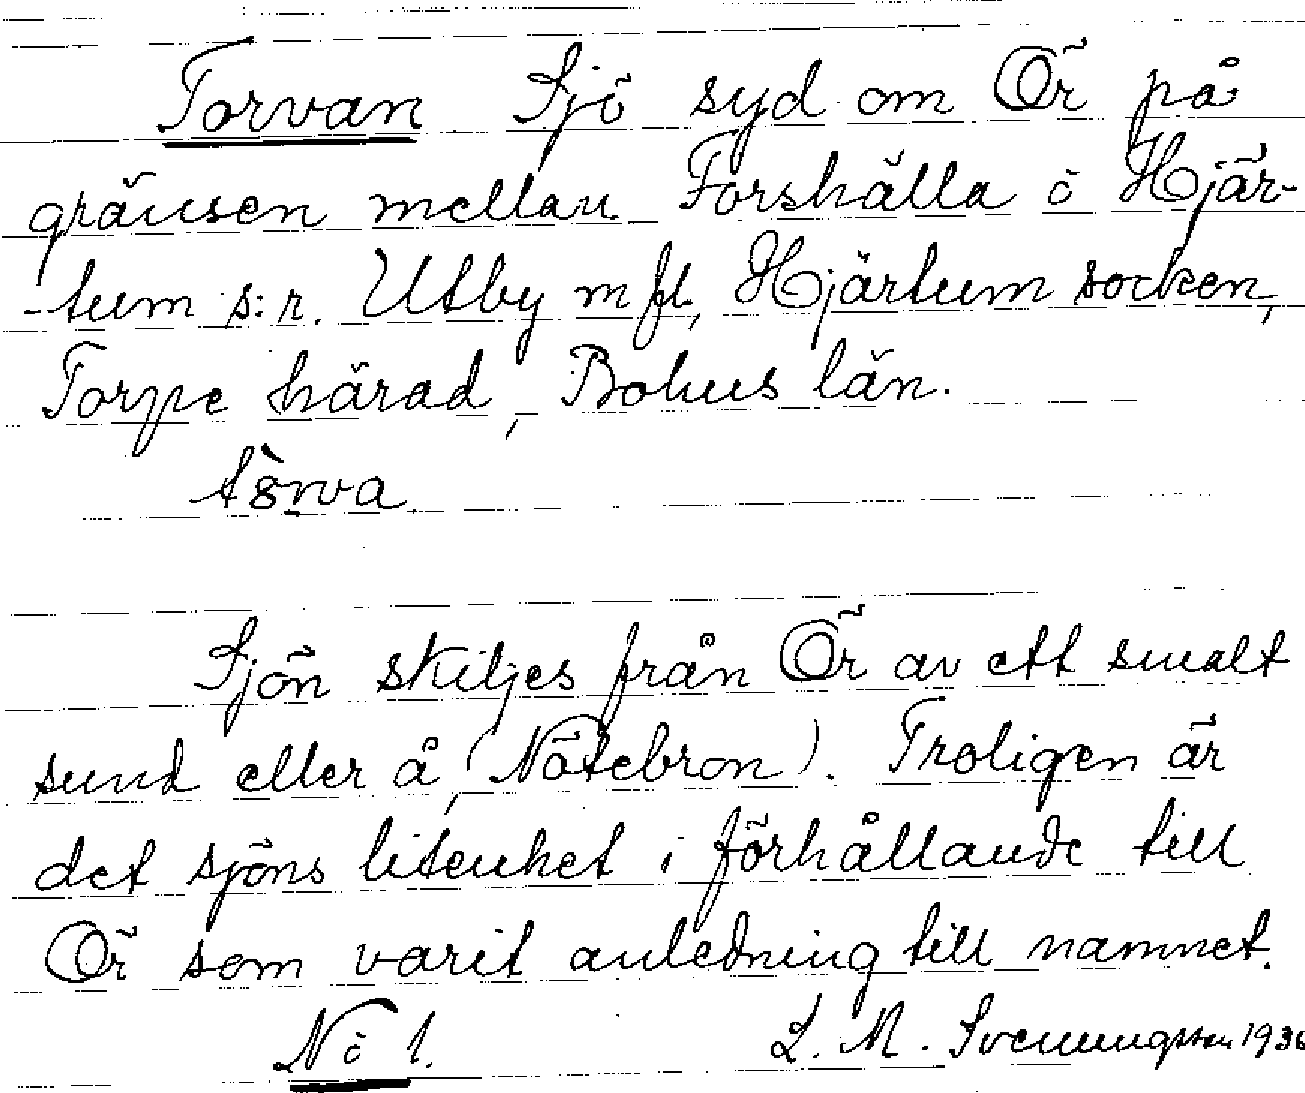 Torvan Sjö syd om Ör på
gränsen mellan Forshälla o Hjär-
-tum s:r. Utby m fl, Hjärtum socken,
Torpe härad, Bohus län.
Sjön skiljes från Ör av ett smalt
sund eller å, (Nötebron). Troligen är
det sjöns litenhet i förhållande till
Ör som varit anledning till namnet.
No 1. L. M. Svenungsson